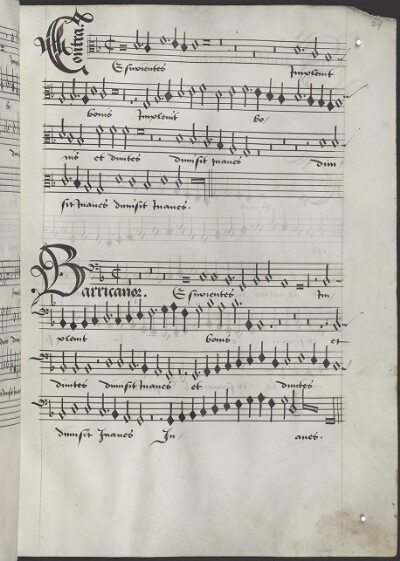 Contra.
Esurientes Implevit
bonis Implevit bo
nis et divites dimisit inanes dimi
sit inanes dimisit inanes.
Barricanor.
Esurientes Im
plevit bonis et
divites dimisit inanes et divites
dimisit Inanes In anes.